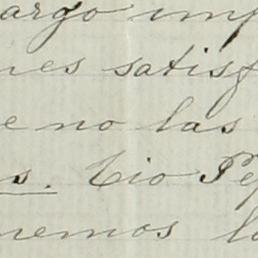 argo imp
nes satisf
e no las
s. Tio Pep
nemos la